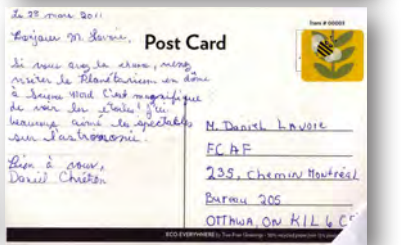 Le 28 mars 2011
Bonjour M. Lavoie,
Si vous avez la chance, venez
visiter le Planétarium en dôme
à Science Nord C'est magnifique
de voir les étoiles! J'ai
beaucoup aimé les spectacles
sur l'astronomie.
Bien à vous,
Daniel Chrétien
Post Card
Item # 00003
M. Daniel Lavoie
FCAF
235, Chemin Montréal
Bureau 205
Ottawa, ON K1L 6C7
ECO EVERYWHERE by Tree-Free Greetings